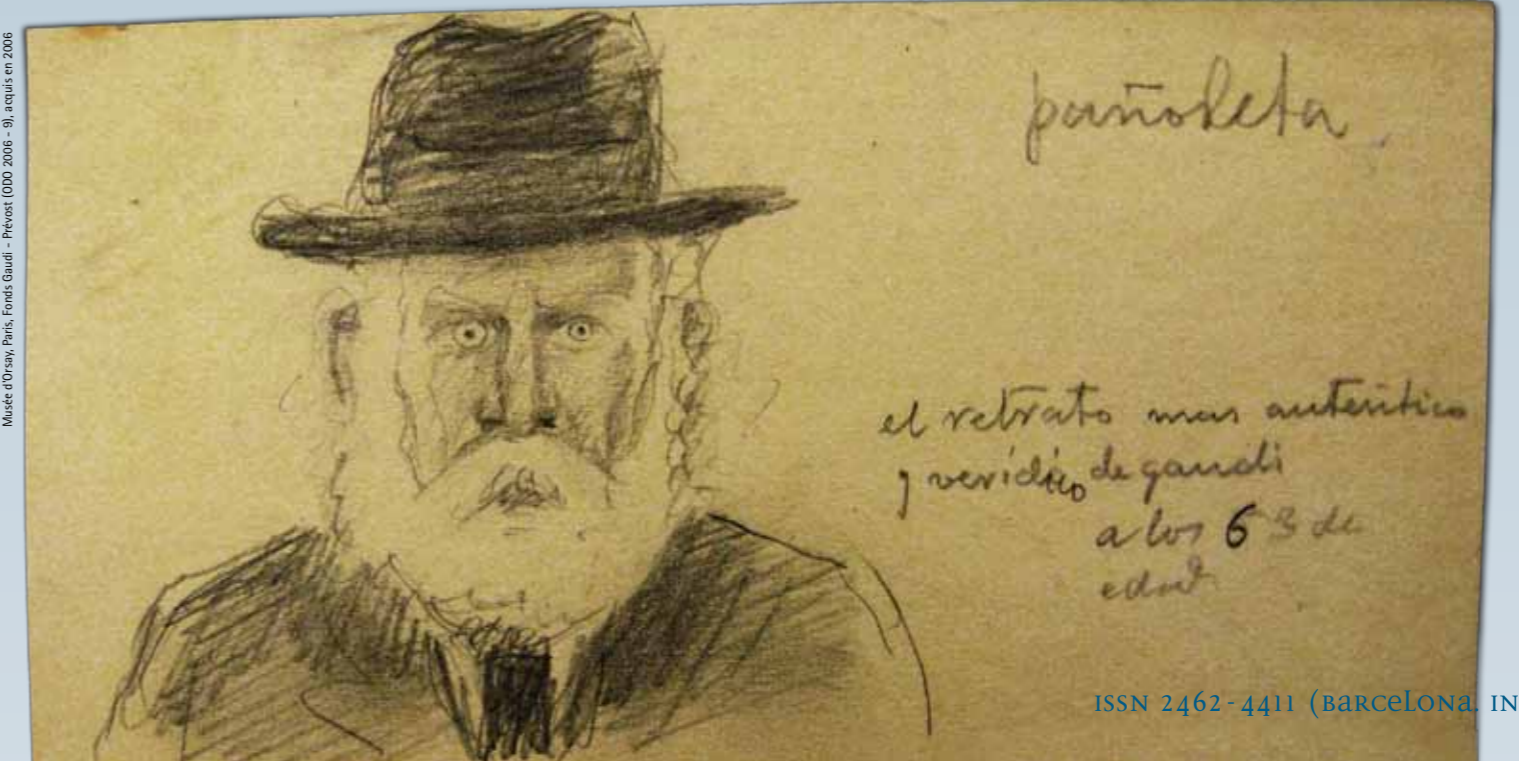 Musée d'Orsay, Paris, Fonds Gaudí - Prévost (ODO 2006 - 9), acquis en 2006
pañoleta
el retrato mas autentico
y verídico de gaudi
a los 63 de
edad
ISSN 2462-4411 (Barcelona. IN